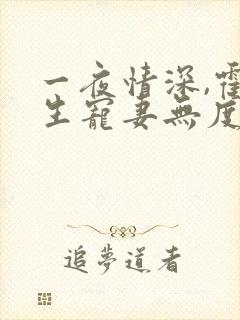 一夜情深,霍
生寵妻無度
追夢道者